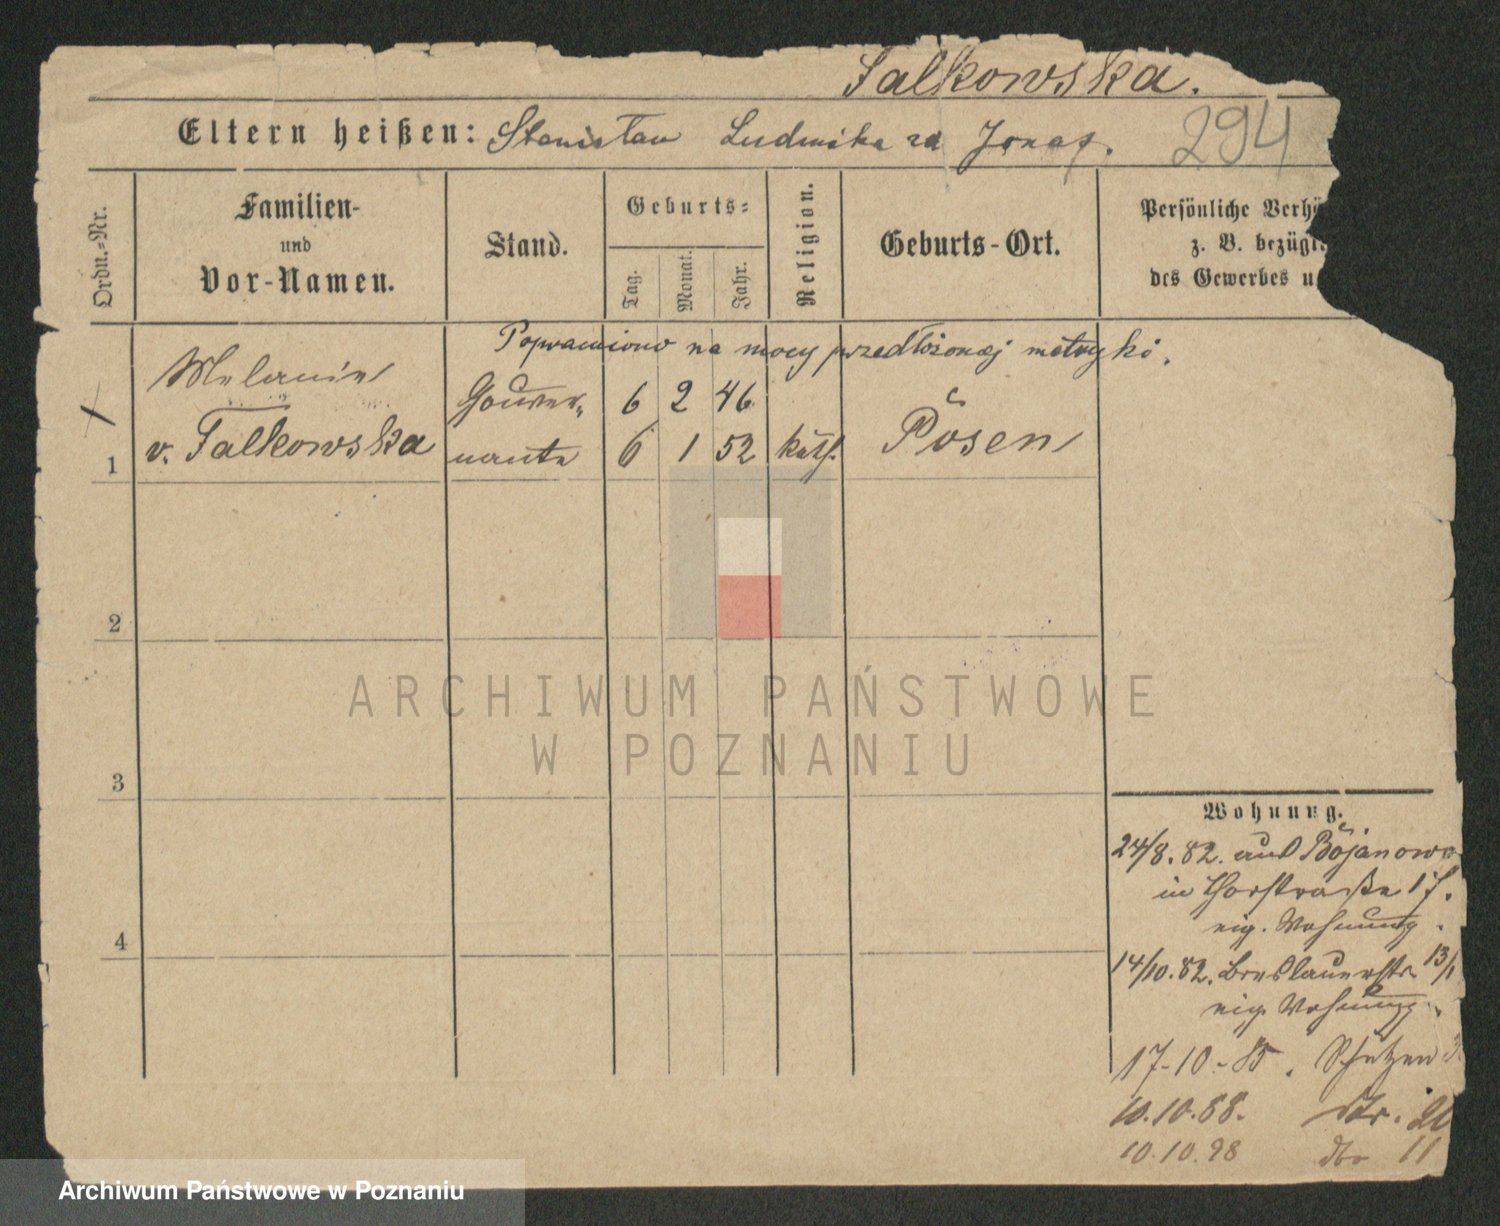 Falkowska.
Eltern heißen: Stanisław Ludmika
294
Ordn.-Nr.
Familien-
und
Vor-Namen.
Stand.
Geburts-
Tag.
Monat.
Jahr.
Religion.
Geburts-Ort.
Persönliche Verhä
z. B. bezügl.
des Gewerbes u
Poprawiono na mocy przedłożonej metryki.
Melanie
Gouver-
6 2 46
1
v. Falkowska
nante
6 1 52
kath.
Posen
2
3
4
Wohnung.
24/8. 82. aus Bojanowo
in Thorstraße 17.
eig. Wohnung.
14/10. 82. Breslauerstr. 13/1
eig. Wohnung.
17-10-85. Schützen
10.10.88. Str. 21
10.10.98 dto 11
ARCHIWUM PAŃSTWOWE
W POZNANIU
Archiwum Państwowe w Poznaniu